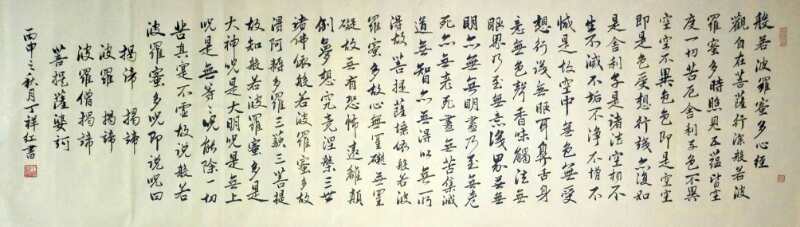 般若波羅蜜多心經
觀自在菩薩行深般若波
羅蜜多時照見五蘊皆空
度一切苦厄舍利子色不異
空空不異色色即是空空
即是色受想行識亦復如
是舍利子是諸法空相不
生不滅不垢不淨不增不
減是故空中無色無受
想行識無眼耳鼻舌身
意無色聲香味觸法無
眼界乃至無意識界無無
明亦無無明盡乃至無老
死亦無老死盡無苦集滅
道無智亦無得以無所
得故菩提薩埵依般若波
羅蜜多故心無罣礙無罣
礙故無有恐怖遠離顛
倒夢想究竟涅槃三世
諸佛依般若波羅蜜多故
得阿耨多羅三藐三菩提
故知般若波羅蜜多是
大神呪是大明呪是無上
呪是無等等呪能除一切
苦真實不虛故說般若
波羅蜜多呪即說呪曰
揭諦 揭諦
波羅 揭諦
波羅僧揭諦
菩提薩婆訶
丙申之秋月丁祥紅書